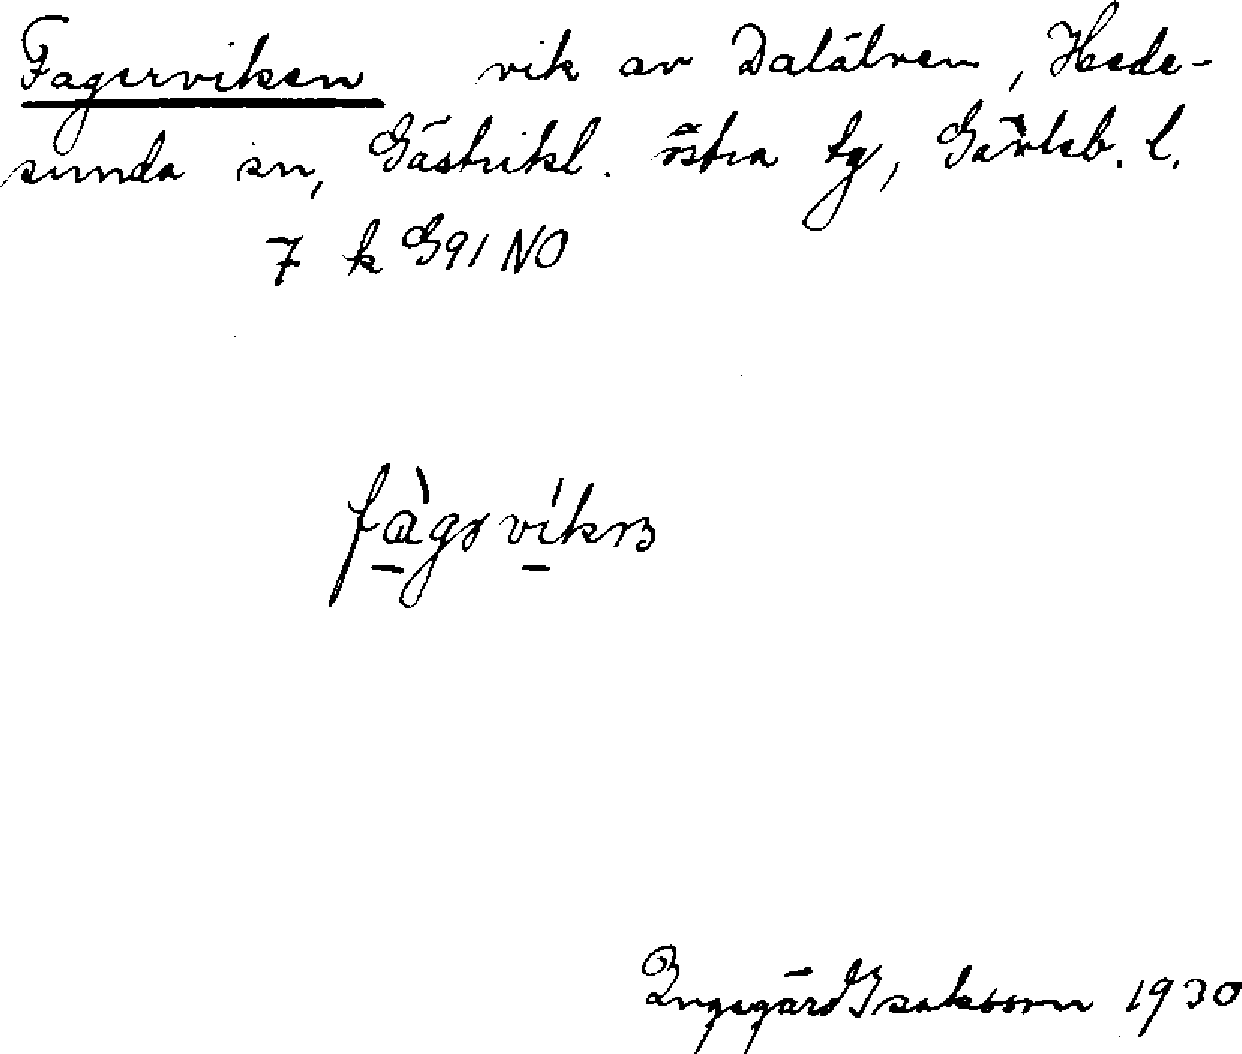 Fagerviken vik av Dalälven, Hede-
sunda sn, Gästrikl. östra tg, Gävleb. l.
7 k G91 NO
fàgərvíkən
Ingegärd Isaksson 1930